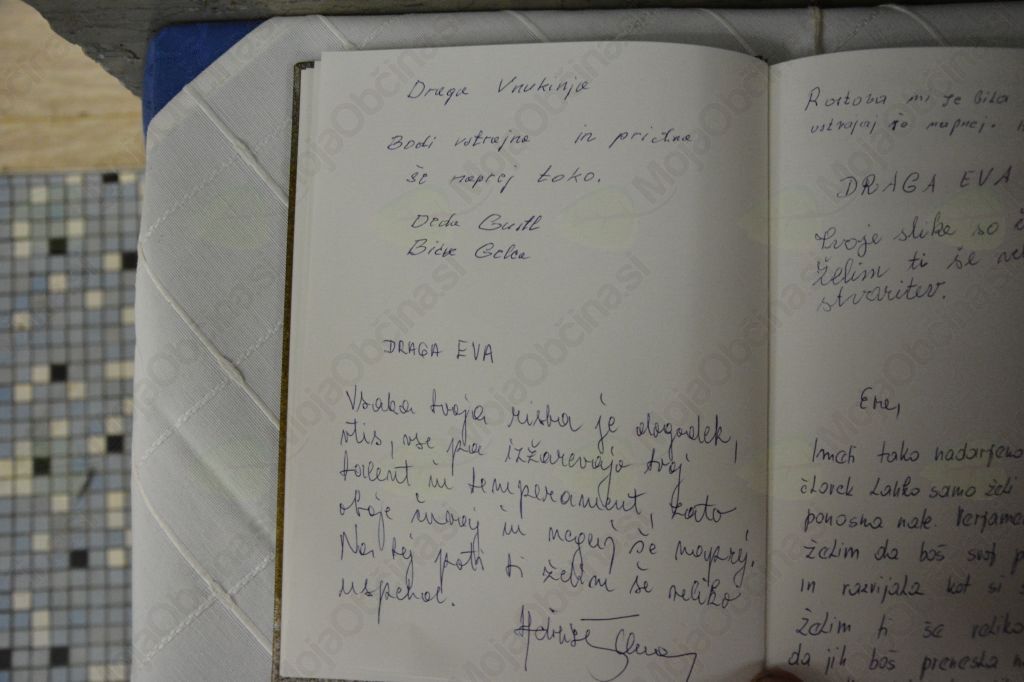 Draga Vnukinja
Bodi vstrajna in pridna
še naprej tako.
Deda Gustl
DRAGA EVA
Vsaka tvoja risba je dogodek,
vtis, vse pa izžarevajo tvoj
talent in temperament, zato
oboje čuvaj in neguj še naprej.
Na tej poti ti želim še veliko
uspehov.
Razstava mi je bila
vstrajaj še naprej.
DRAGA EVA
Tvoje slike so
želim ti še
stvaritev.
Eva,
Imeti tako nadarjeno
človek lahko samo želi
ponosna nate. Verjamem
želim da boš svoj
in razvijala kot si
želim ti še veliko
da jih boš prenesla
MojaObčina.si